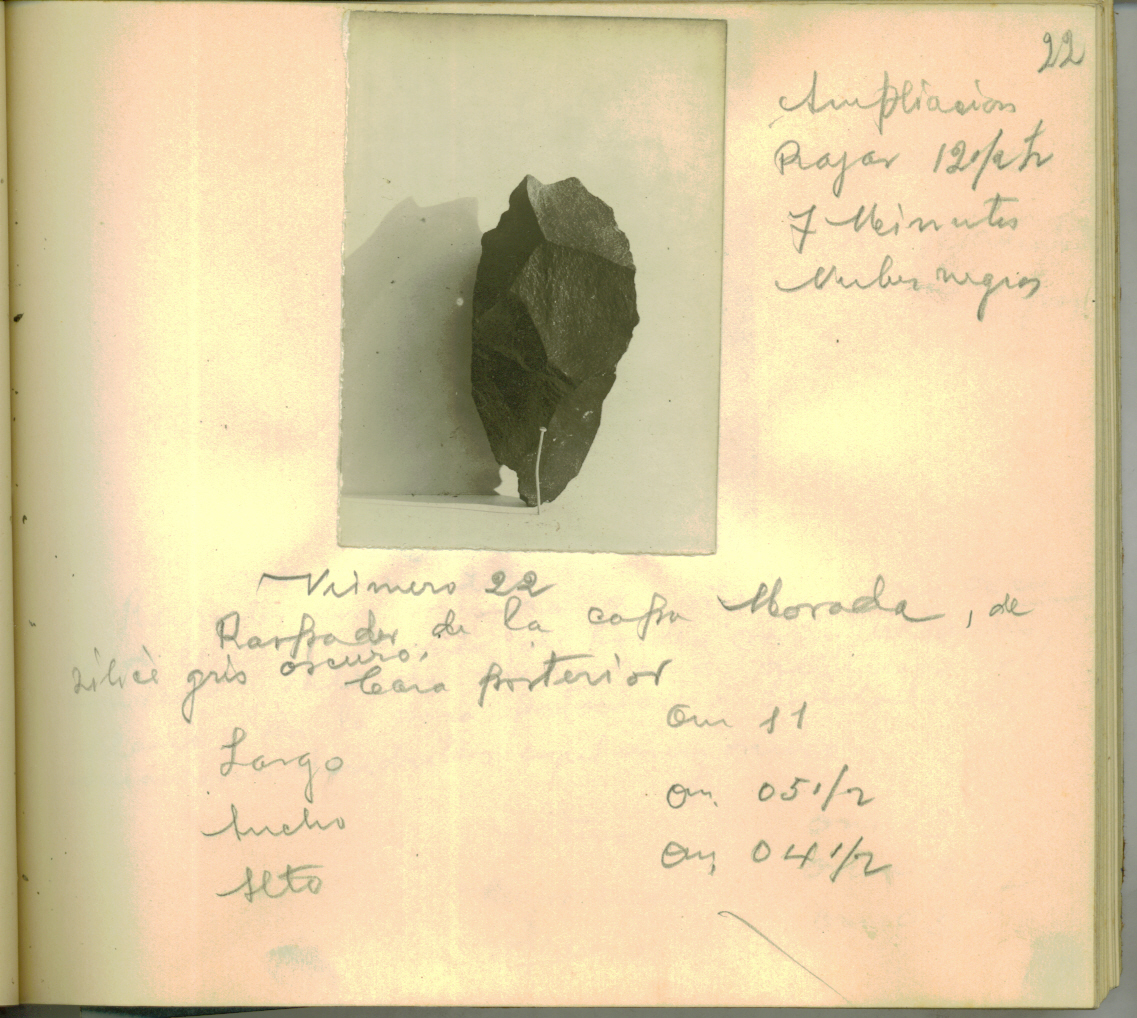 22
Ampliacion
Rajar 12 1/2 h
7 Minutos
Nubes negras
Número 22
Raspador de la capa Morada, de
silice gris oscuro.
Cara posterior
Largo 0m 11
Ancho 0m, 05 1/2
Alto 0m, 04 1/2